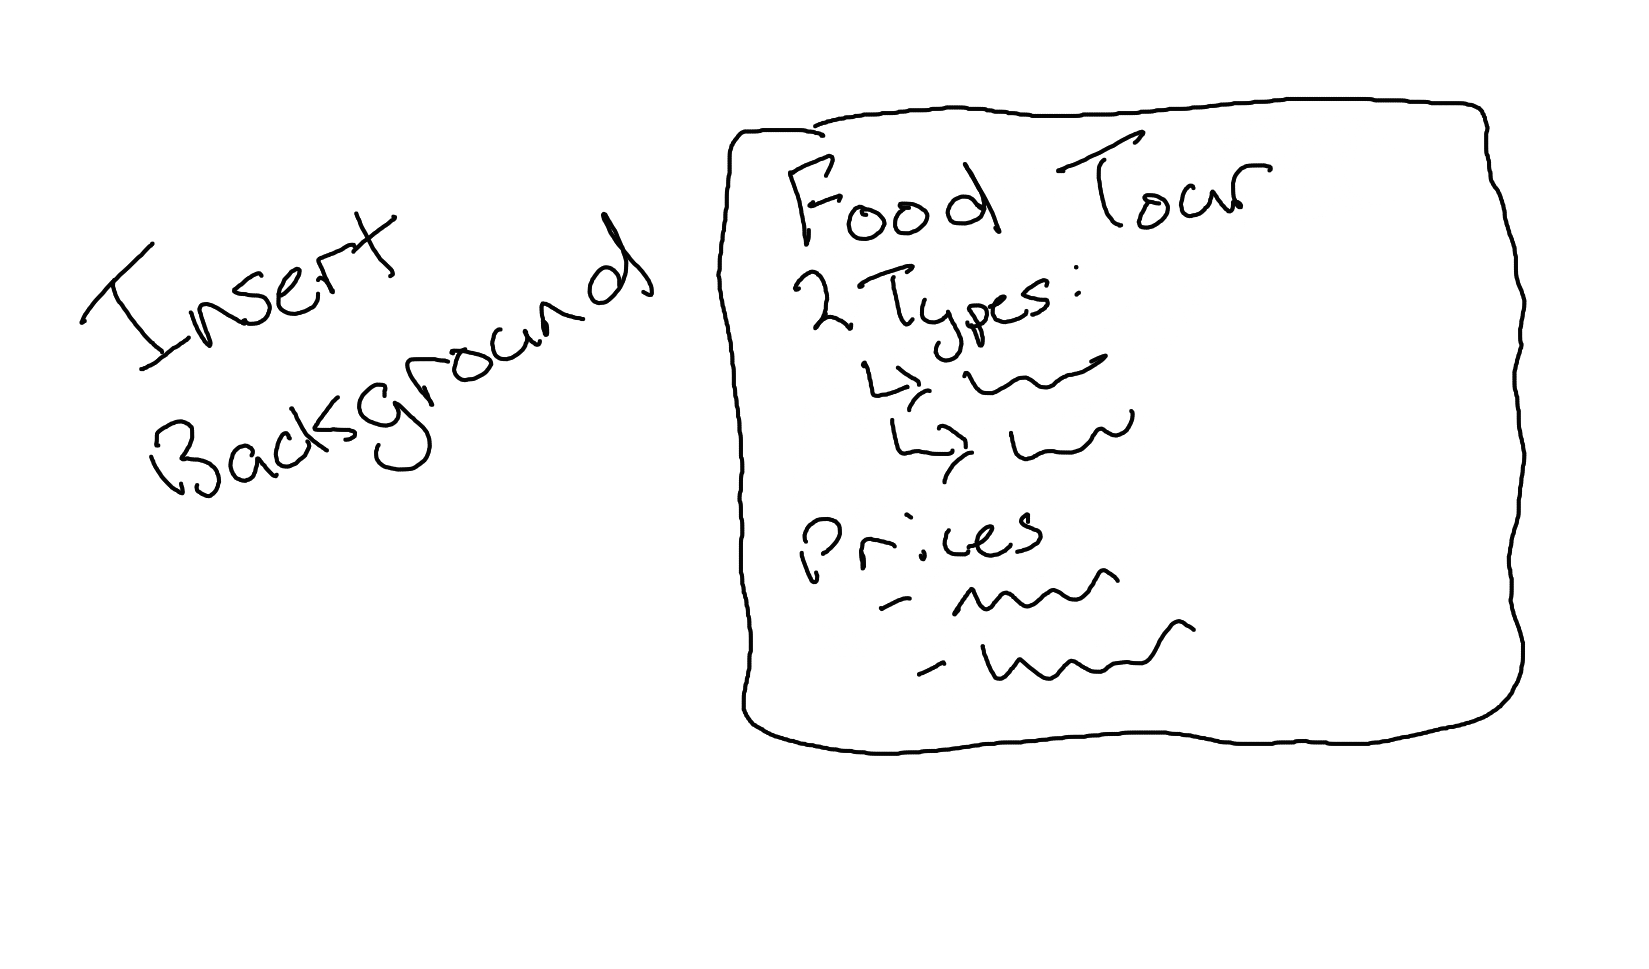 Insert
Background
Food Tour
2 Types:
Prices
-
-